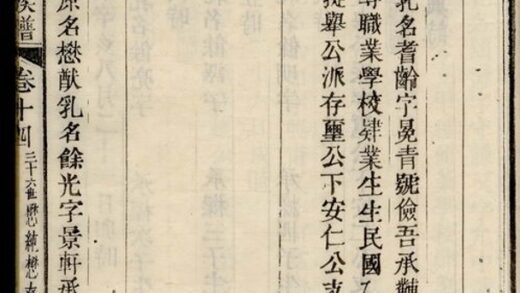 乳名耆齡字冕青號儉吾承
專職業學校肄業生生民國乙
舉公派存璽公下安仁公支
原名懋猷乳名餘光字景軒承
族譜
卷十四
三十六世懋純懋